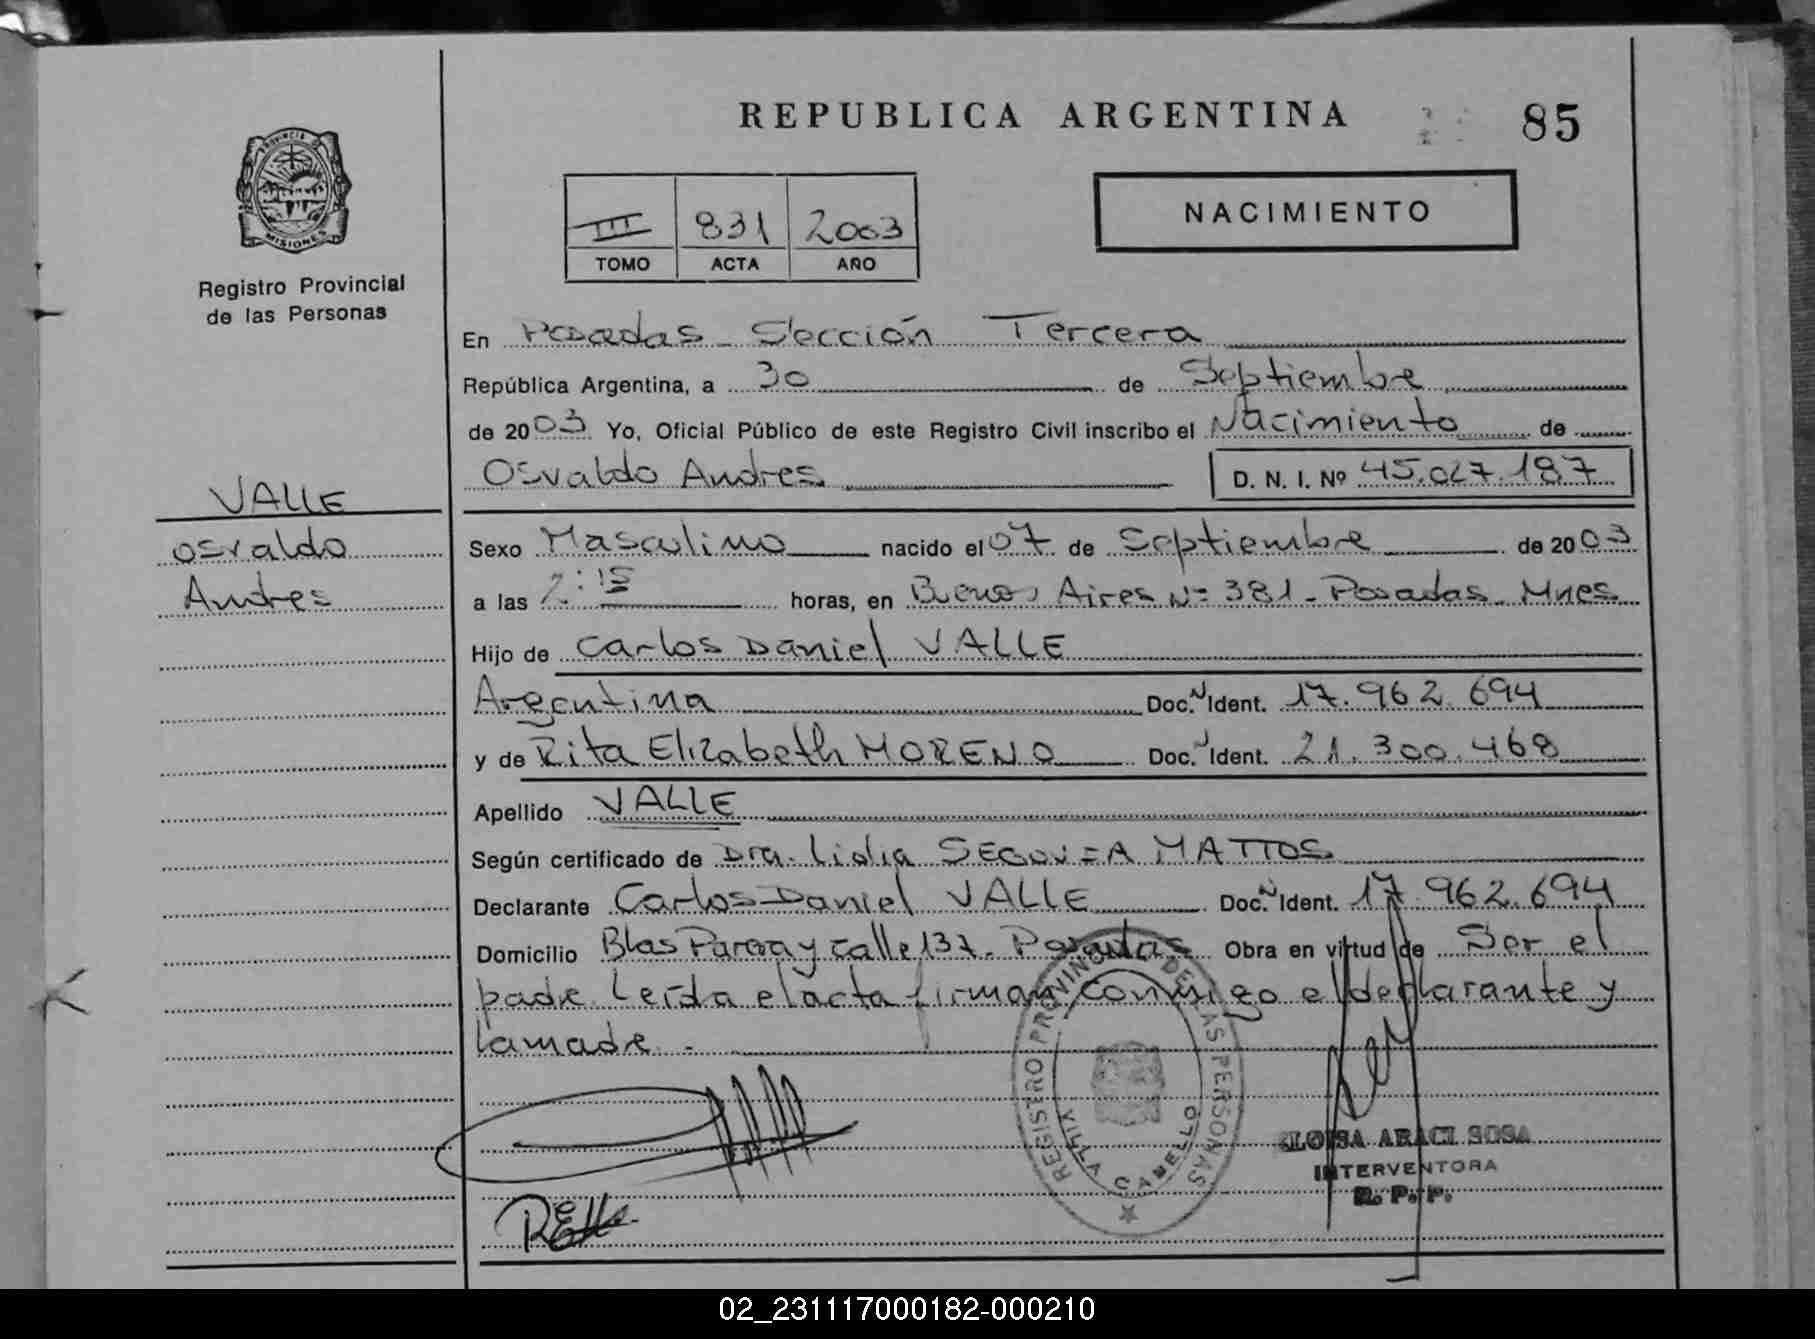 REPUBLICA ARGENTINA
85
PROVINCIA
MISIONES
Registro Provincial
de las Personas
III 831 2003
TOMO ACTA AÑO
NACIMIENTO
En Posadas - Sección Tercera
República Argentina, a 30 de Septiembre
de 2003 Yo, Oficial Público de este Registro Civil inscribo el Nacimiento de
Osvaldo Andres D. N. I. Nº 45.027.187
VALLE
Osvaldo
Andres
Sexo Masculino nacido el 07 de Septiembre de 2003
a las 2:15 horas, en Buenos Aires Nº 381 - Posadas - Mnes
Hijo de Carlos Daniel VALLE
Argentina Doc. N Ident. 17.962.694
y de Rita Elizabeth MORENO Doc. Ident. 21.300.468
Apellido VALLE
Según certificado de Dra. Lidia SEGOVIA MATTOS
Declarante Carlos Daniel VALLE Doc. N Ident. 17.962.694
Domicilio Blas Parera y calle 137 - Posadas Obra en virtud de Ser el
padre. Leída el acta firman conmigo el declarante y
la madre. -
REGISTRO PROVINCIAL DE LAS PERSONAS
VILLA CABELLO
ELOISA ARACI SOSA
INTERVENTORA
R. P. P.
02_231117000182-000210